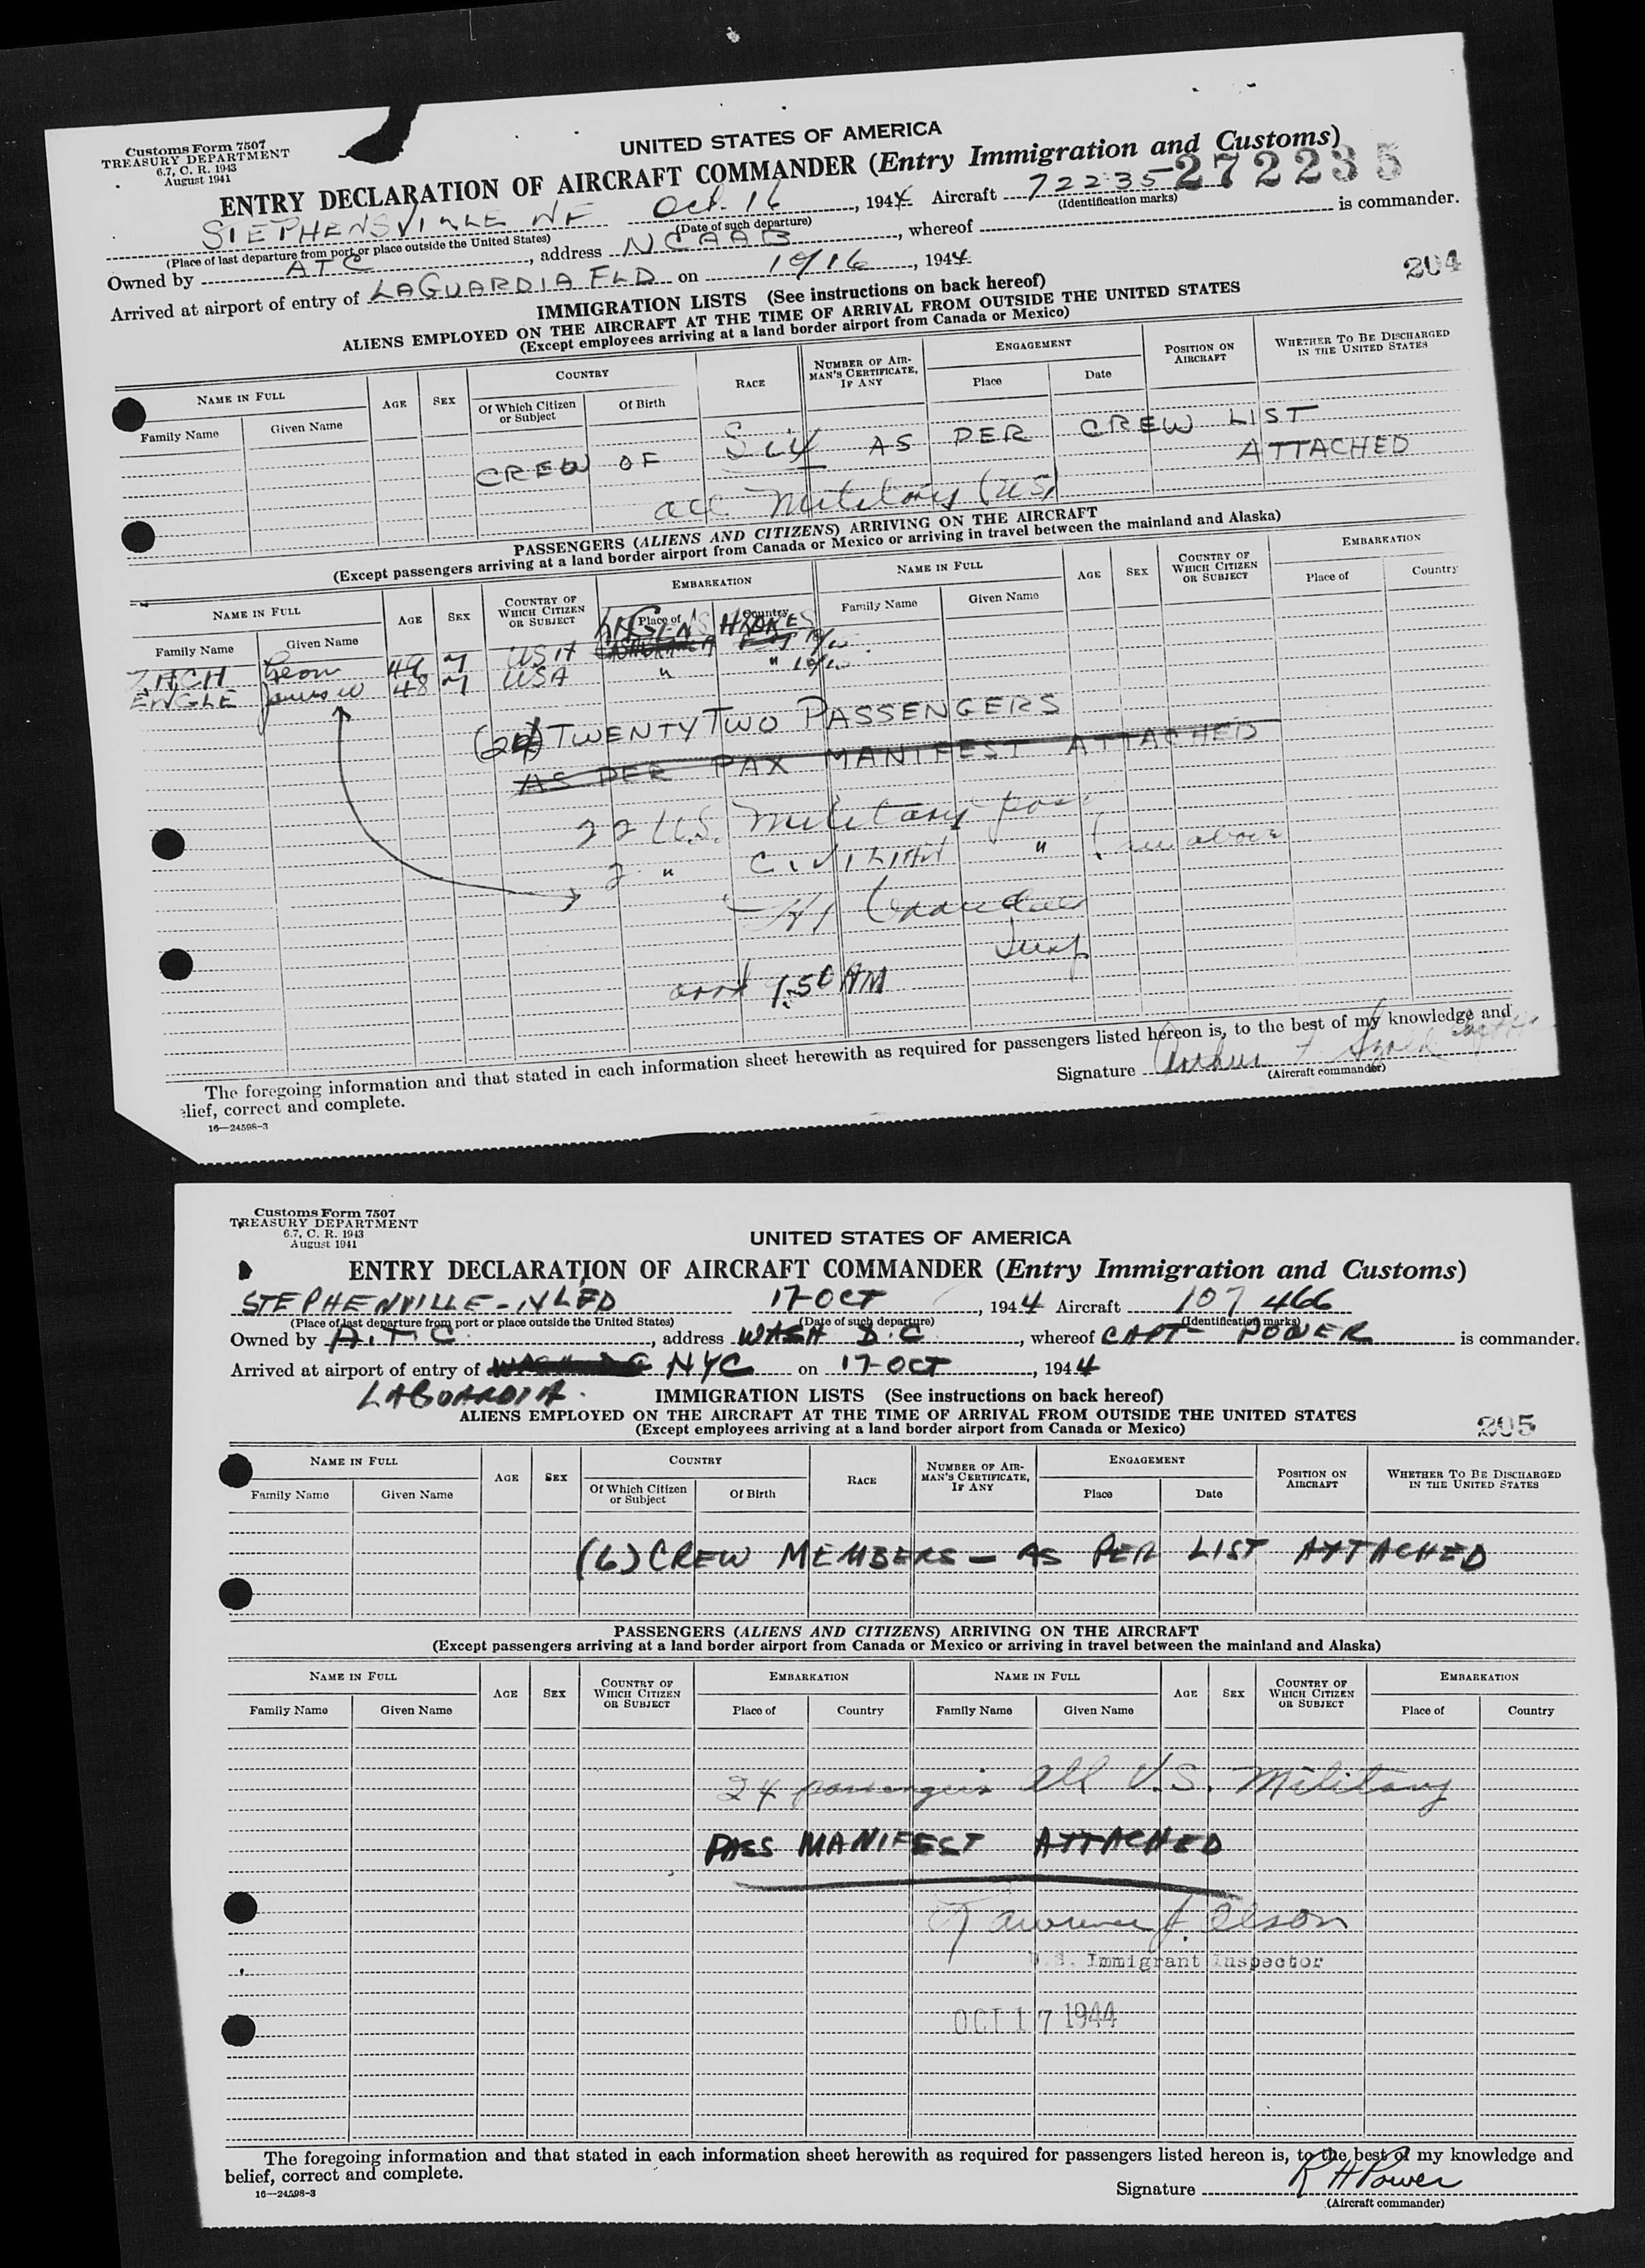 Customs Form 7507
TREASURY DEPARTMENT
6.7, C. R. 1943
August 1941
UNITED STATES OF AMERICA
ENTRY DECLARATION OF AIRCRAFT COMMANDER (Entry Immigration and Customs)
272235
STEPHENSVILLE NF Oct. 16, 1944 Aircraft 72235
(Place of last departure from port or place outside the United States) (Date of such departure) (Identification marks)
Owned by ATC, address NCAAB, whereof is commander.
Arrived at airport of entry of LAGUARDIA FLD on 10/16, 1944
204
IMMIGRATION LISTS (See instructions on back hereof)
ALIENS EMPLOYED ON THE AIRCRAFT AT THE TIME OF ARRIVAL FROM OUTSIDE THE UNITED STATES
(Except employees arriving at a land border airport from Canada or Mexico)
NAME IN FULL AGE SEX COUNTRY RACE NUMBER OF AIRMAN'S CERTIFICATE, IF ANY ENGAGEMENT POSITION ON AIRCRAFT WHETHER TO BE DISCHARGED IN THE UNITED STATES
Family Name Given Name Of Which Citizen or Subject Of Birth Place Date
CREW OF Six AS PER CREW LIST
ATTACHED
all Military (US)
PASSENGERS (ALIENS AND CITIZENS) ARRIVING ON THE AIRCRAFT
(Except passengers arriving at a land border airport from Canada or Mexico or arriving in travel between the mainland and Alaska)
NAME IN FULL AGE SEX COUNTRY OF WHICH CITIZEN OR SUBJECT EMBARKATION NAME IN FULL AGE SEX COUNTRY OF WHICH CITIZEN OR SUBJECT EMBARKATION
Family Name Given Name Place of Country Family Name Given Name Place of Country
Leon 49 M USA
ENGLE James W 48 M USA " "
TWENTY TWO PASSENGERS
AS PER PAX MANIFEST ATTACHED
22 U.S. Military pass
2 " CIVILIAN " see above
Insp
arrd 1:50 AM
The foregoing information and that stated in each information sheet herewith as required for passengers listed hereon is, to the best of my knowledge and
elief, correct and complete.
Signature Arthur F
(Aircraft commander)
16—24598-3
Customs Form 7507
TREASURY DEPARTMENT
6.7, C. R. 1943
August 1941
UNITED STATES OF AMERICA
ENTRY DECLARATION OF AIRCRAFT COMMANDER (Entry Immigration and Customs)
STEPHENVILLE-NLFD 17-OCT, 1944 Aircraft 107466
(Place of last departure from port or place outside the United States) (Date of such departure) (Identification marks)
Owned by A.T.C., address WASH D.C, whereof CAPT- POWER is commander.
Arrived at airport of entry of NYC on 17-OCT, 1944
LAGUARDIA.
IMMIGRATION LISTS (See instructions on back hereof)
ALIENS EMPLOYED ON THE AIRCRAFT AT THE TIME OF ARRIVAL FROM OUTSIDE THE UNITED STATES
(Except employees arriving at a land border airport from Canada or Mexico)
205
NAME IN FULL AGE SEX COUNTRY RACE NUMBER OF AIRMAN'S CERTIFICATE, IF ANY ENGAGEMENT POSITION ON AIRCRAFT WHETHER TO BE DISCHARGED IN THE UNITED STATES
Family Name Given Name Of Which Citizen or Subject Of Birth Place Date
(6) CREW MEMBERS - AS PER LIST ATTACHED
PASSENGERS (ALIENS AND CITIZENS) ARRIVING ON THE AIRCRAFT
(Except passengers arriving at a land border airport from Canada or Mexico or arriving in travel between the mainland and Alaska)
NAME IN FULL AGE SEX COUNTRY OF WHICH CITIZEN OR SUBJECT EMBARKATION NAME IN FULL AGE SEX COUNTRY OF WHICH CITIZEN OR SUBJECT EMBARKATION
Family Name Given Name Place of Country Family Name Given Name Place of Country
24 passengers all U.S. Military
PASS MANIFEST ATTACHED
Lawrence J. Olson
U.S. Immigrant Inspector
OCT 17 1944
The foregoing information and that stated in each information sheet herewith as required for passengers listed hereon is, to the best of my knowledge and
belief, correct and complete.
Signature R H Power
(Aircraft commander)
16—24598-3